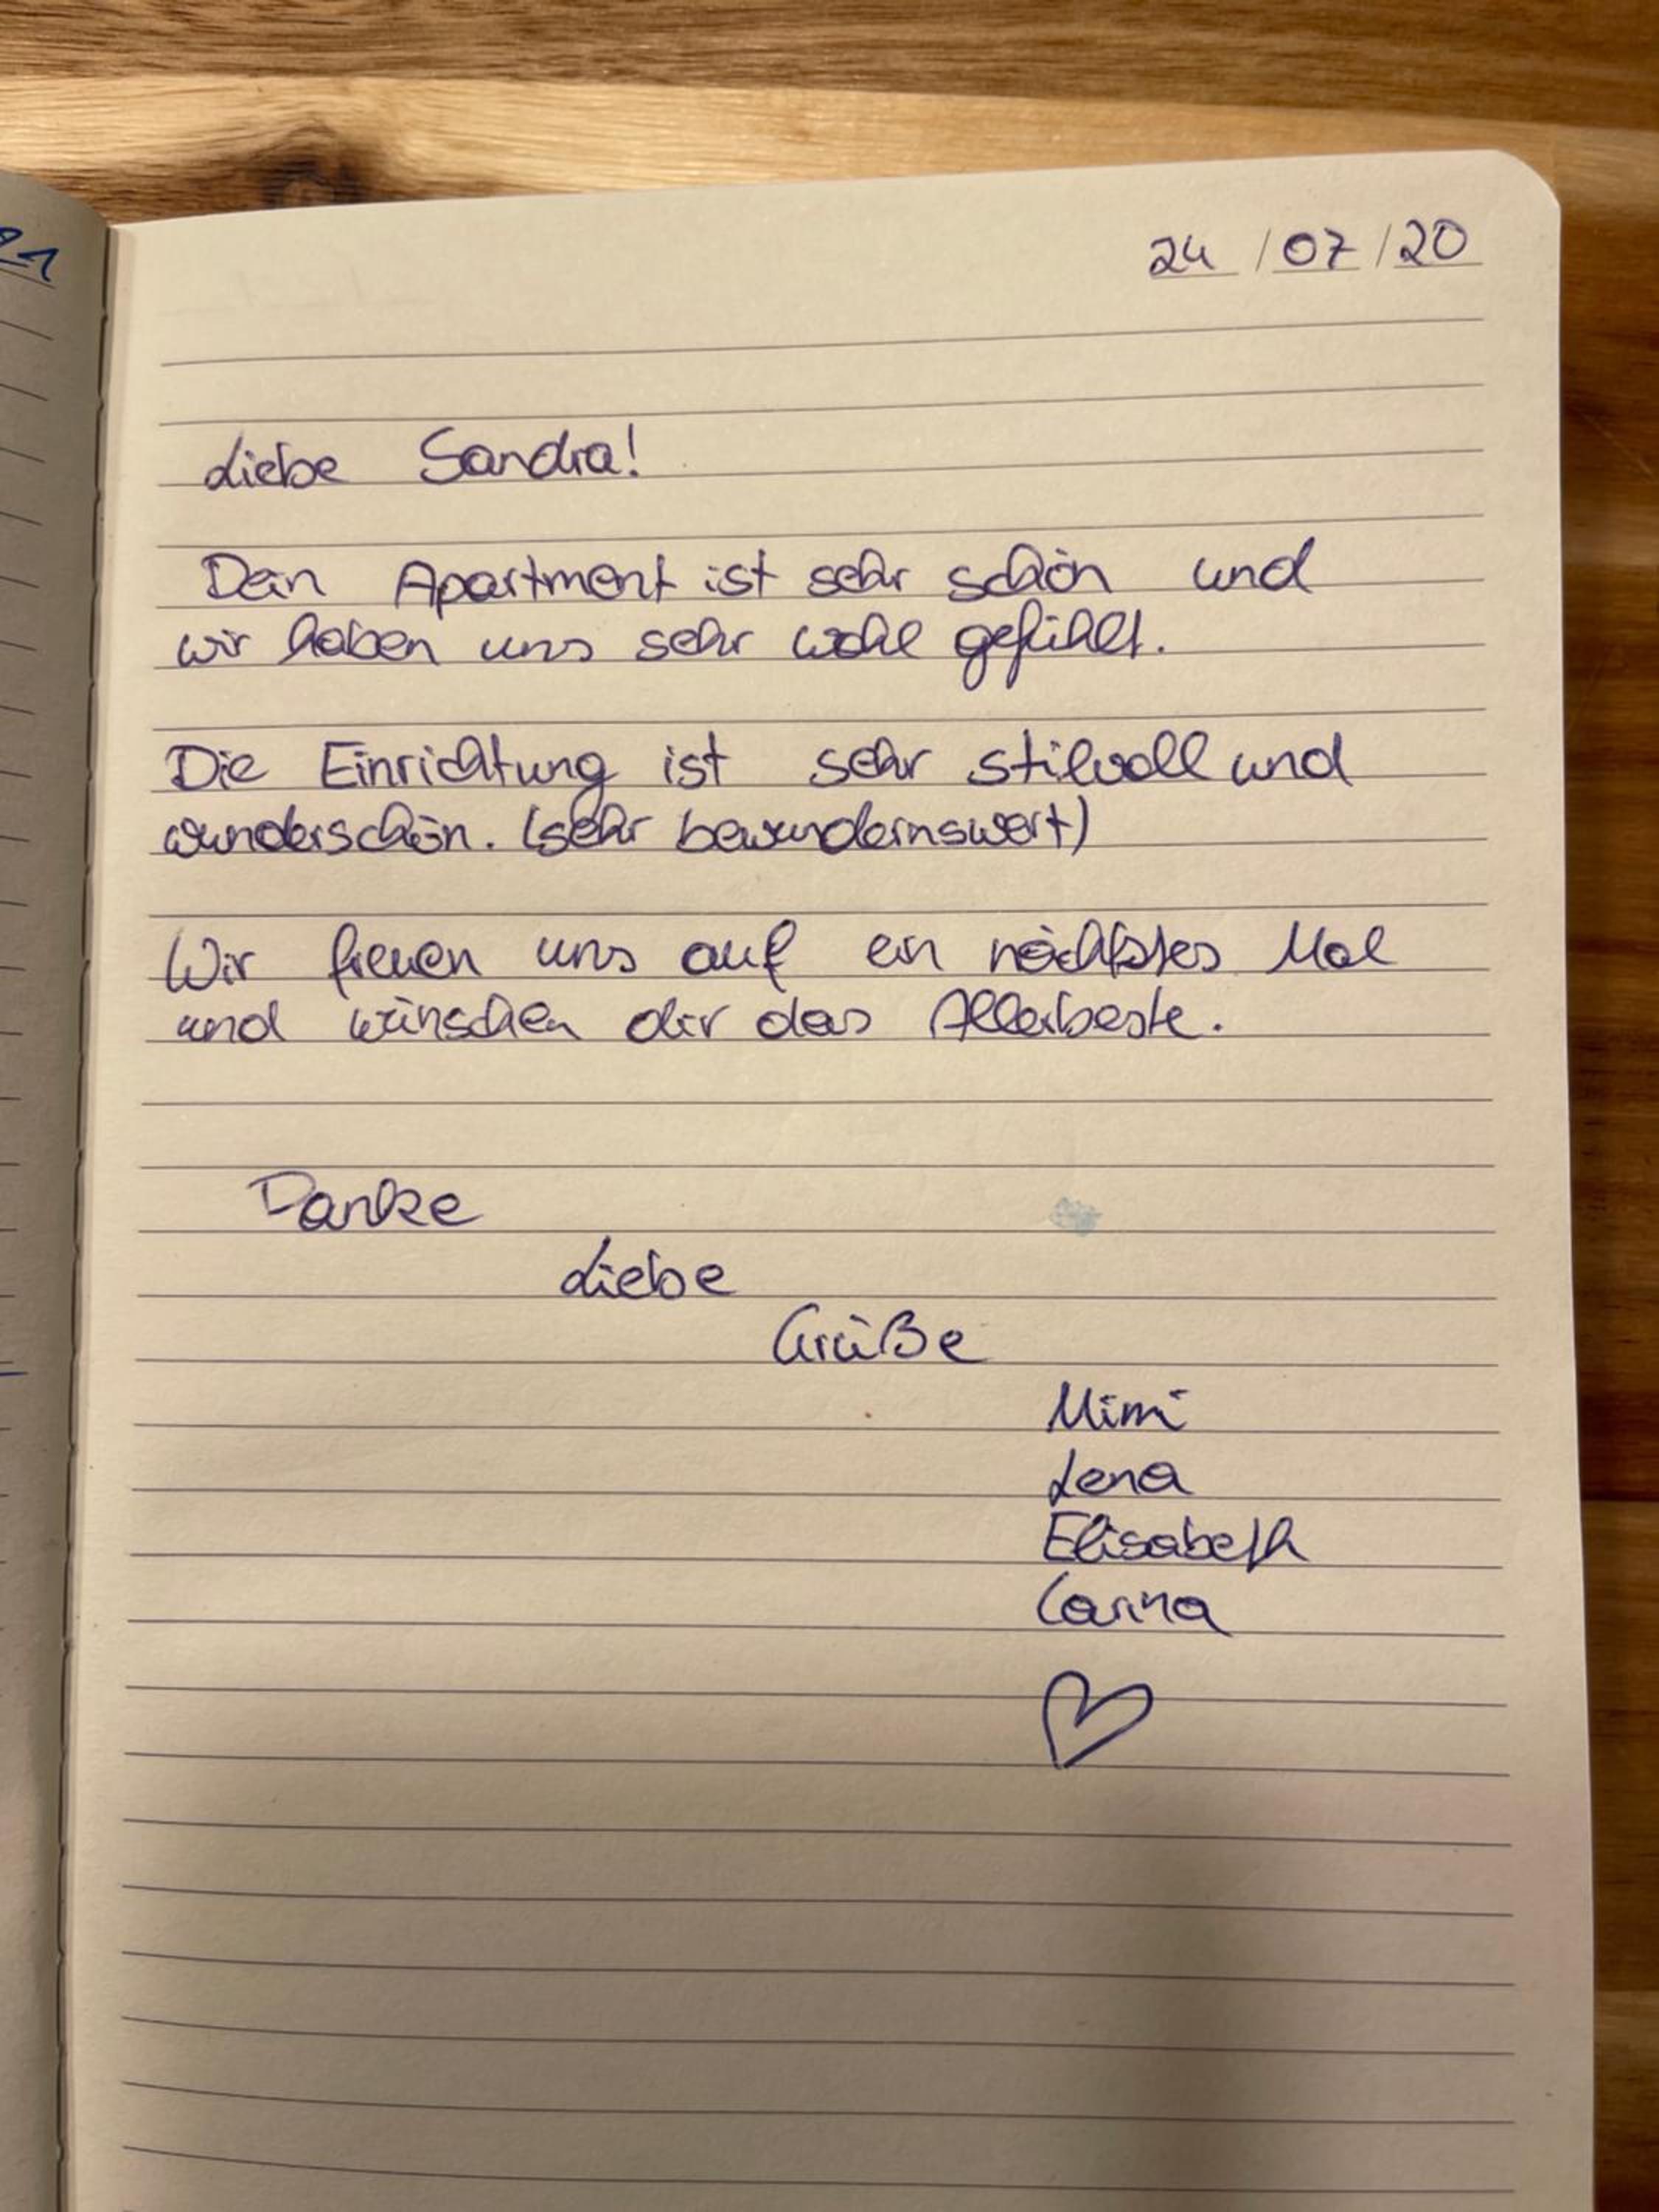 21
24/07/20
Liebe Sandra!
Dein Apartment ist sehr schön und
wir haben uns sehr wohl gefühlt.
Die Einrichtung ist sehr stilvoll und
wunderschön. (sehr bewundernswert)
Wir freuen uns auf ein nächstes Mal
und wünschen dir das Allerbeste.
Danke
Liebe
Grüße
Mimi
Lena
Elisabeth
Carina